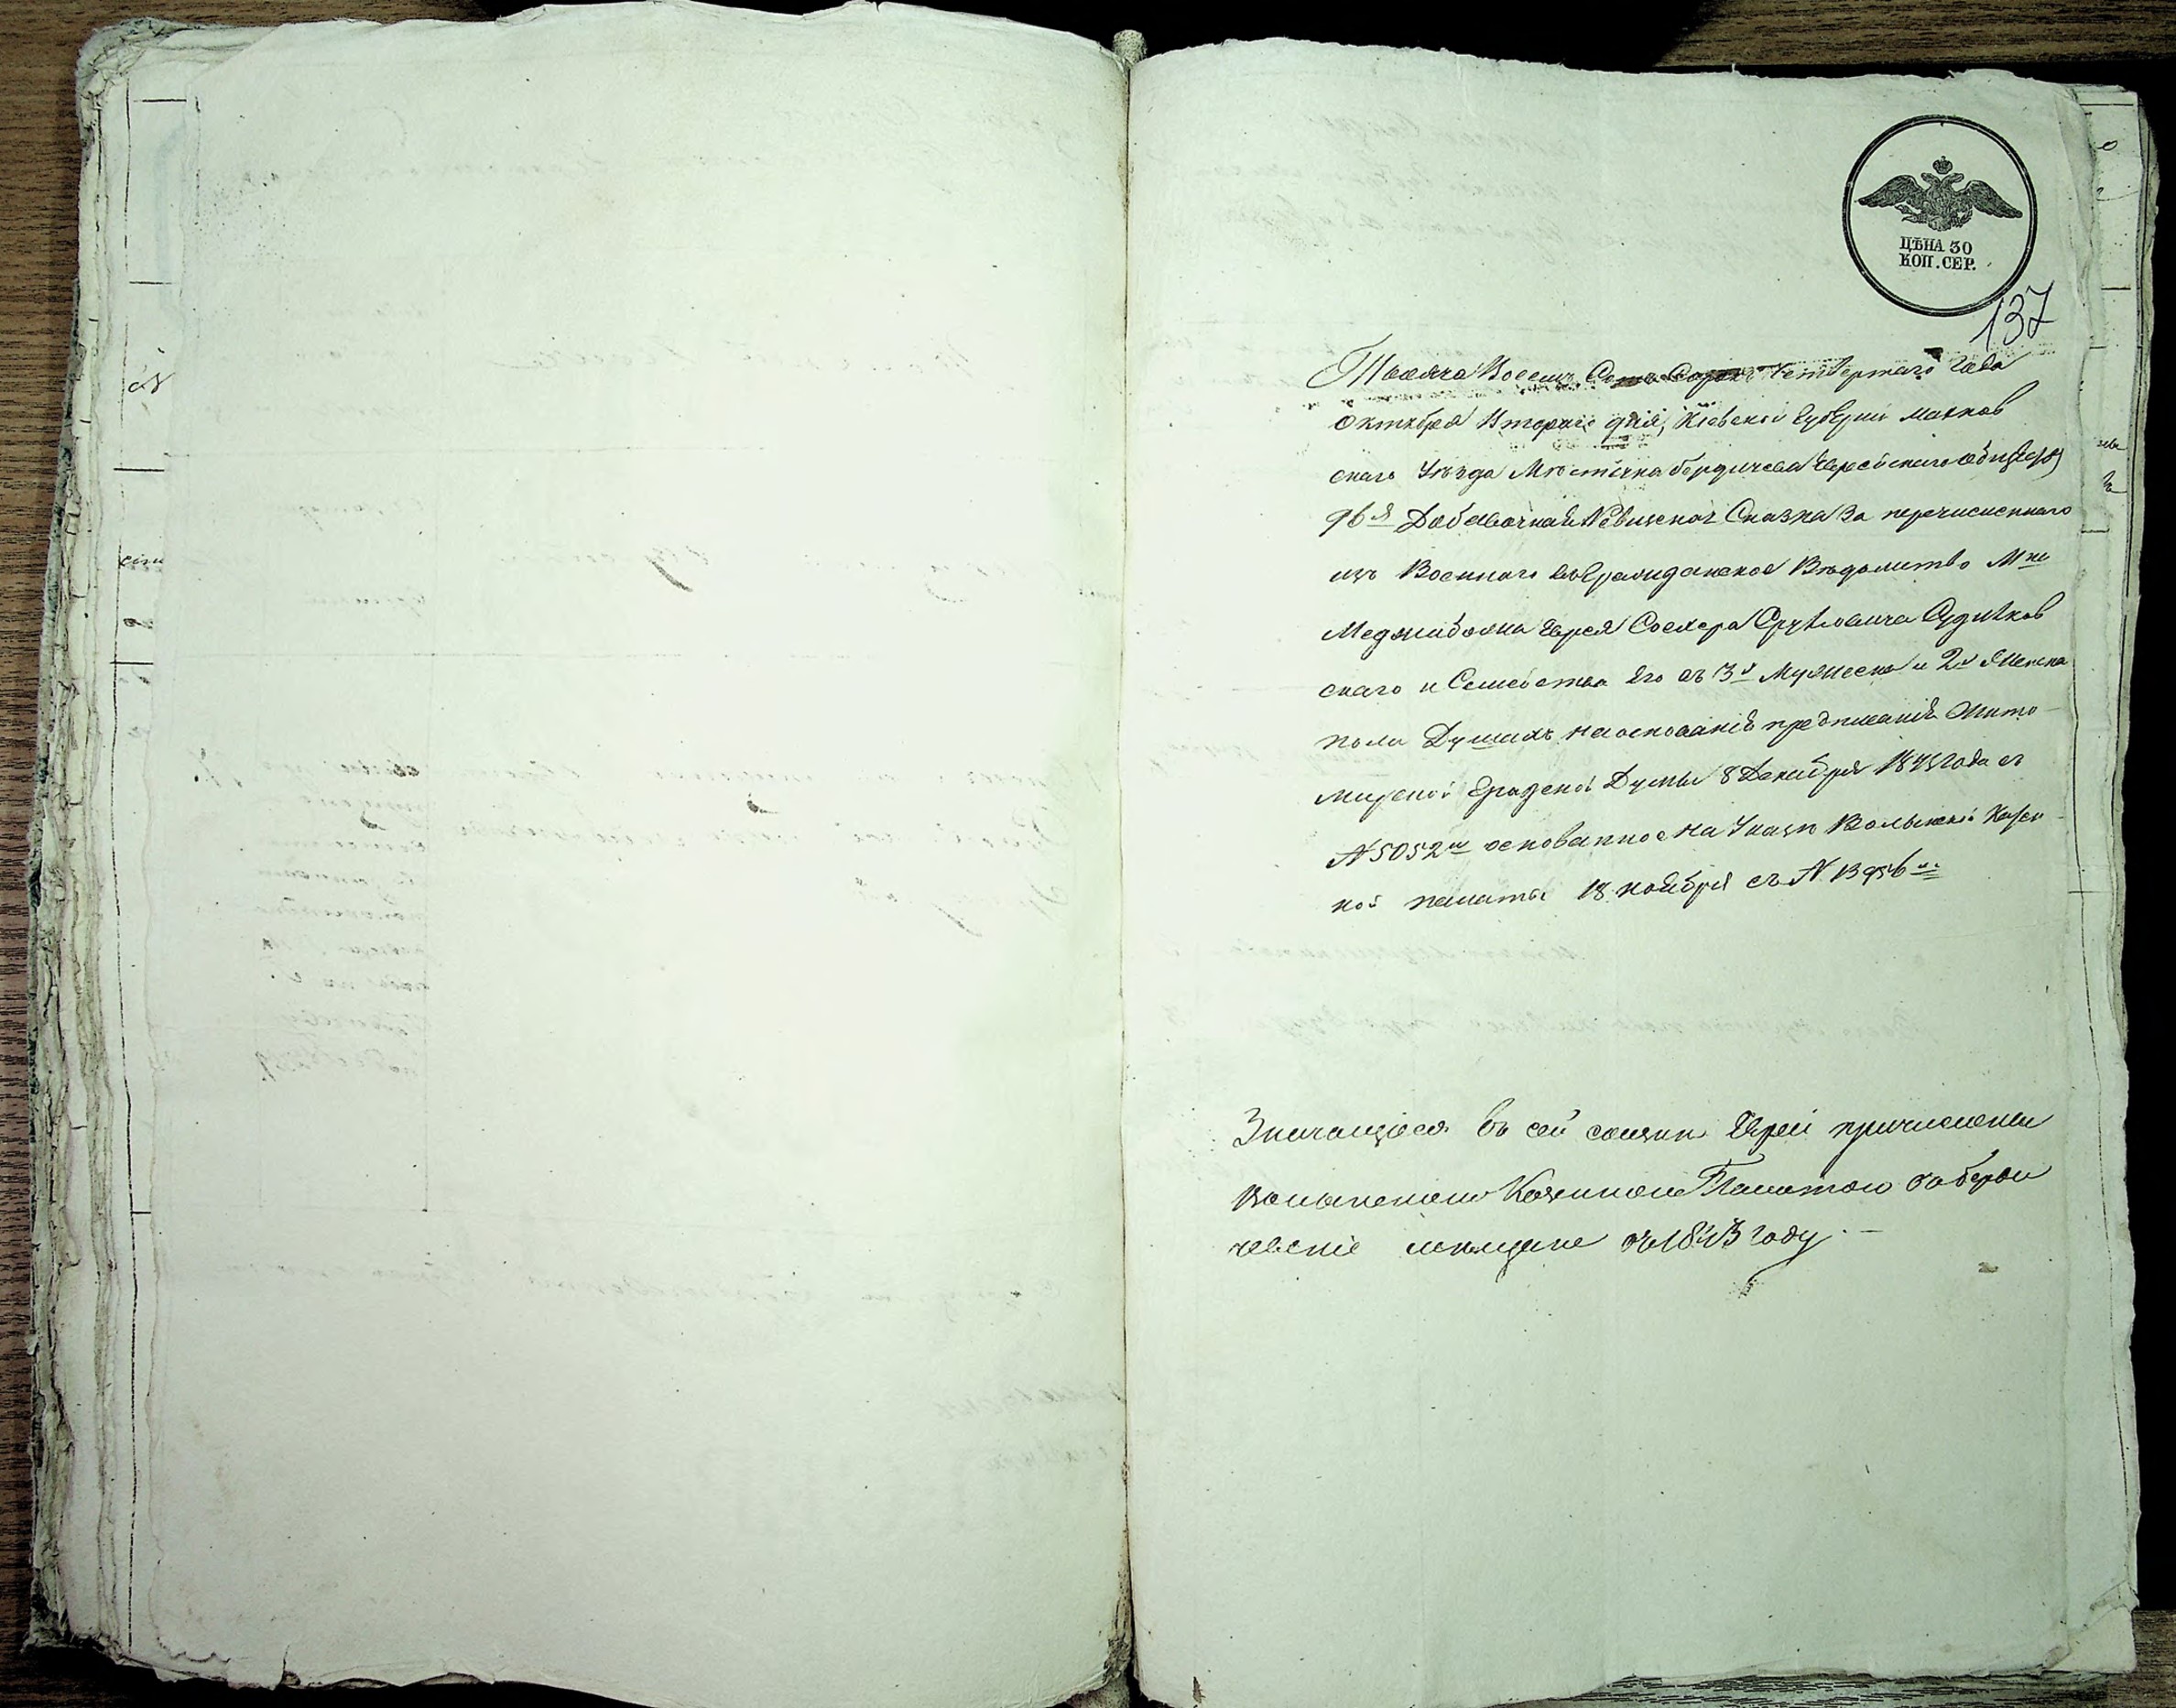 ЦѢНА 30
КОП. СЕР.
137
Тысяча Восемь Сотъ Сорокъ Четвертаго Года
Октября Втораго дня, Кіевской Губерніи Махнов
скаго Уѣзда Мѣстечка Бердичева Еврейскаго общества
Добавочная Ревизская Сказка За перечисленнаго
изъ Военнаго въ Гражданское Вѣдомство М<sup>ка</sup>
Меджибожа Еврея Срулевича Судилков
скаго и Семейства Его въ 3<sup>х</sup> Мужеска и 2<sup>х</sup> Женска
пола Душахъ на основаніи предписанія Жито
мирской Градской Думы 8 Декабря года съ
N 5052<sup>м</sup> основанное на Указѣ Волынской Казен
ной палаты 18 ноября съ N
Значащіеся въ сей сказки Евреи причислены
Волынскою Казенною Палатою въ Берди
чевскіе мещане въ 1843 году.